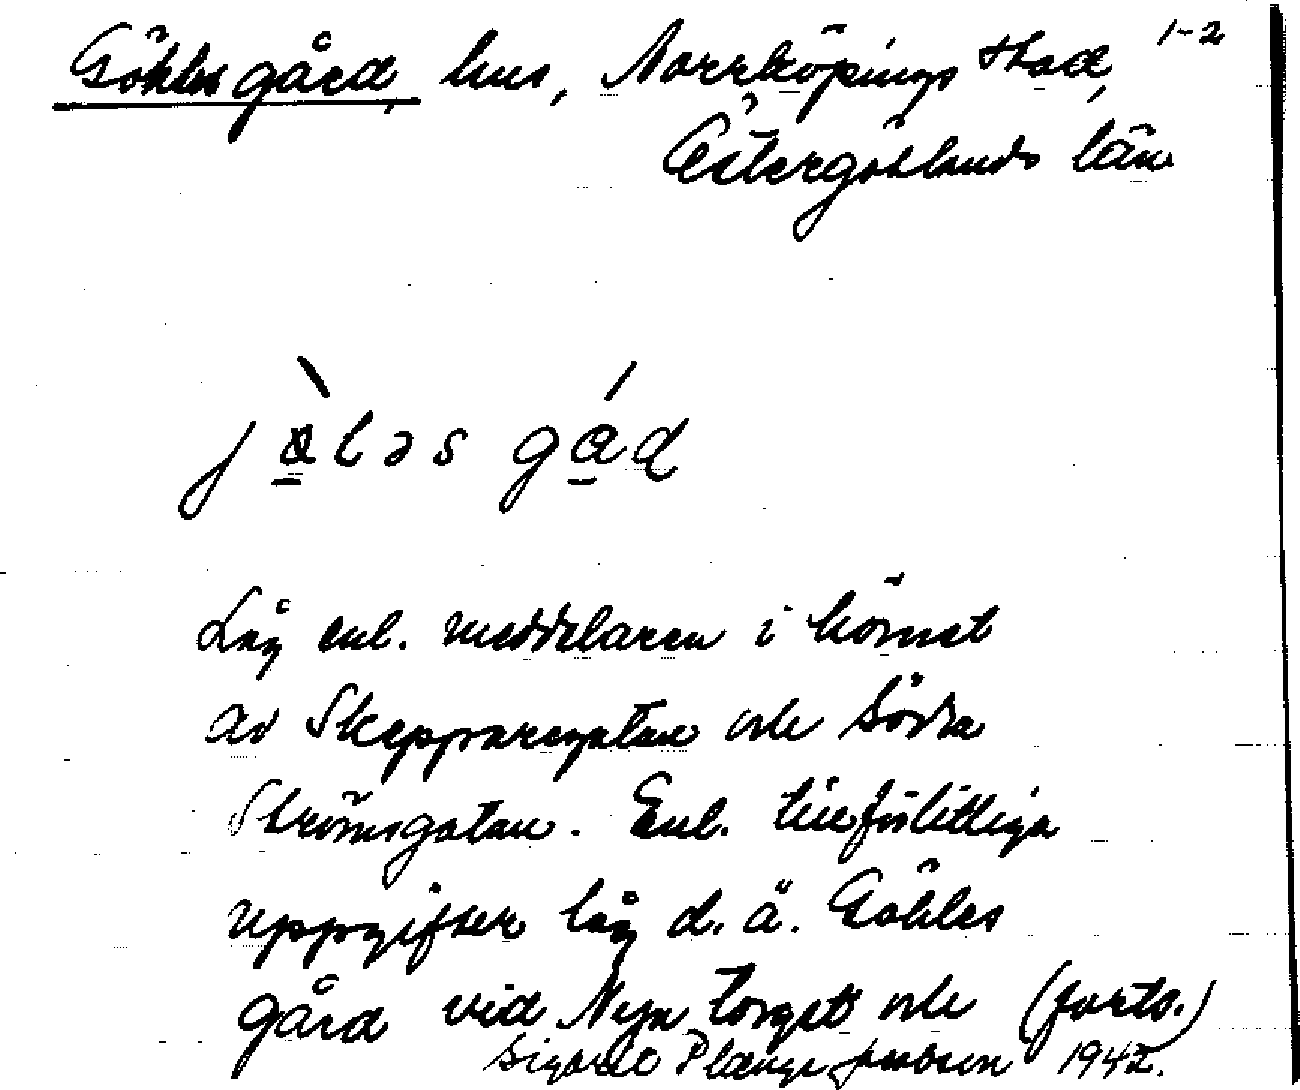 Göhles gård, hus, Norrköpings stad, 1-2
Östergötlands län
gård
Låg enl. meddelaren i hörnet
av Skepparegatan och Södra
Strömsgatan. Enl. tillförlitliga
uppgifter låg d. ä. Göhles
gård vid Nya torget och (forts.)
1942.